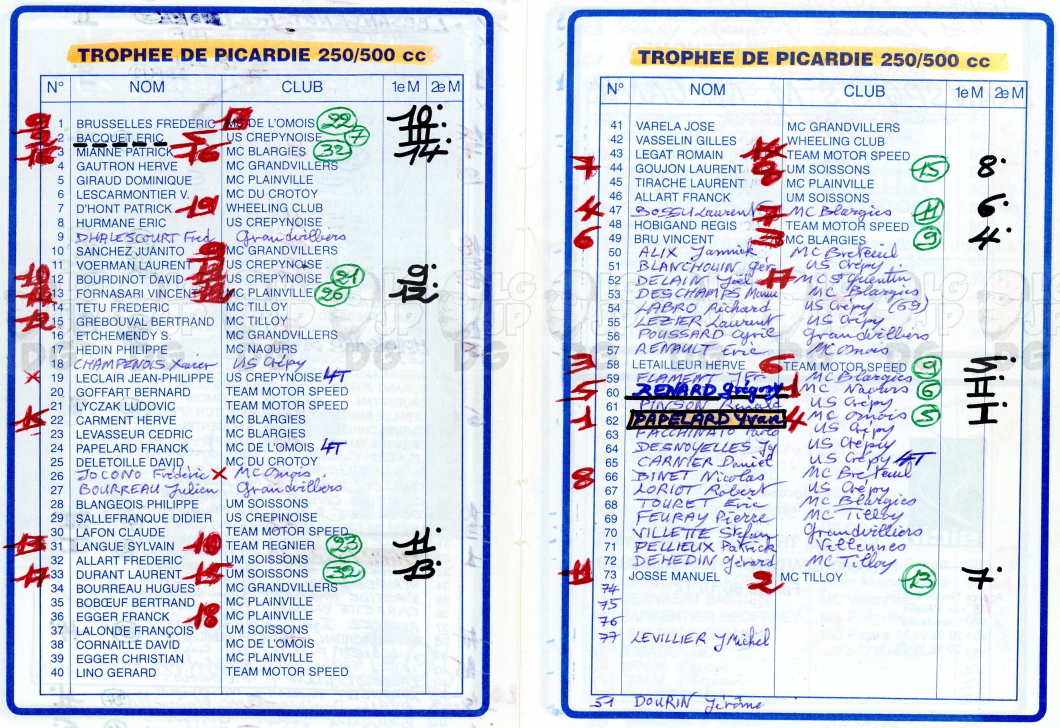 TROPHEE DE PICARDIE 250/500 cc
N° NOM CLUB 1e M 2e M
9 1 BRUSSELLES FREDERIC MC DE L'OMOIS 22 10.
2 BACQUET ERIC US CREPYNOISE 17 11.
16 3 MIANNE PATRICK 16 MC BLARGIES 32 14
4 GAUTRON HERVE MC GRANDVILLERS
5 GIRAUD DOMINIQUE MC PLAINVILLE
6 LESCARMONTIER V. MC DU CROTOY
7 D'HONT PATRICK 19 WHEELING CLUB
8 HURMANE ERIC US CREPYNOISE
9 DHALESCOURT Fred Grandvilliers
10 SANCHEZ JUANITO 9 MC GRANDVILLERS
11 VOERMAN LAURENT US CREPYNOISE
10 12 BOURDINOT DAVID 11 US CREPYNOISE 21 9.
13 FORNASARI VINCENT MC PLAINVILLE 26 12.
14 TETU FREDERIC MC TILLOY
12 15 GREBOUVAL BERTRAND MC TILLOY
16 ETCHEMENDY S. MC GRANDVILLERS
17 HEDIN PHILIPPE MC NAOURS
18 CHAMPENOIS Xavier US Crépy
x 19 LECLAIR JEAN-PHILIPPE US CREPYNOISE 4T
20 GOFFART BERNARD TEAM MOTOR SPEED
21 LYCZAK LUDOVIC TEAM MOTOR SPEED
15 22 CARMENT HERVE MC BLARGIES
23 LEVASSEUR CEDRIC MC BLARGIES
24 PAPELARD FRANCK MC DE L'OMOIS 4T
25 DELETOILLE DAVID MC DU CROTOY
26 JOCONO Frédéric x MC Omois
27 BOURREAU Julien Grandvilliers
28 BLANGEOIS PHILIPPE UM SOISSONS
29 SALLEFRANQUE DIDIER US CREPINOISE
30 LAFON CLAUDE TEAM MOTOR SPEED
13 31 LANGUE SYLVAIN 10 TEAM REGNIER 23 11.
32 ALLART FREDERIC UM SOISSONS
17 33 DURANT LAURENT 15 UM SOISSONS 32 13.
34 BOURREAU HUGUES MC GRANDVILLERS
35 BOBŒUF BERTRAND MC PLAINVILLE
36 EGGER FRANCK 18 MC PLAINVILLE
37 LALONDE FRANÇOIS UM SOISSONS
38 CORNAILLE DAVID MC DE L'OMOIS
39 EGGER CHRISTIAN MC PLAINVILLE
40 LINO GERARD TEAM MOTOR SPEED
TROPHEE DE PICARDIE 250/500 cc
N° NOM CLUB 1e M 2e M
41 VARELA JOSE MC GRANDVILLERS
42 VASSELIN GILLES WHEELING CLUB
43 LEGAT ROMAIN 14 TEAM MOTOR SPEED
7 44 GOUJON LAURENT 8 UM SOISSONS 15 8.
45 TIRACHE LAURENT MC PLAINVILLE
46 ALLART FRANCK UM SOISSONS
4 47 BOSSU Laurent 7 MC Blargies 11 6.
48 HOBIGAND REGIS TEAM MOTOR SPEED
6 49 BRU VINCENT 3 MC BLARGIES 9 4.
50 ALIX Jannick MC Breteuil
51 BLANCHOUIN Gér US Crépy
52 DELAIN Joel 17 MC St Quentin
53 DESCHAMPS Manu MC Blargies
54 LABRO Richard US Crépy (69)
55 LEZIER Laurent US Crépy
56 POUSSARD Cyric Grandvilliers
57 RENAULT Eric MC Omois
3 58 LETAILLEUR HERVE 6 TEAM MOTOR SPEED 9 5.
59 FLAMENT MC Blargies
5 60 RENARD Grégory 1 MC Naours 6 II
61 PINSON Renald US Crépy
1 62 PAPELARD Yvan 4 MC Omois 5 I
63 FACCHINATO Paolo US Crépy
64 DESNOYELLES Jy US Crépy
65 CARNIER Daniel US Crépy 4T
8 66 BINET Nicolas MC Breteuil
67 LORIOT Robert US Crépy
68 TOURET Eric MC Blargies
69 FEURAY Pierre MC Tilloy
70 VILLETTE Stefan Grandvilliers
71 PELLIEUX Patrick Villeunes
72 DEHEDIN Gérard MC Tilloy
11 73 JOSSE MANUEL 2 MC TILLOY 13 7.
74
75
76
77 LEVILLIER J Michel
51 DOURIN Jérôme